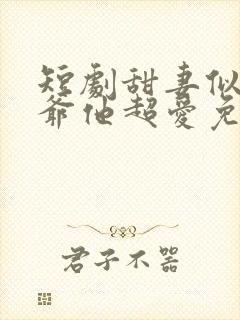 短劇甜妻似
爺他超愛免
君子不器